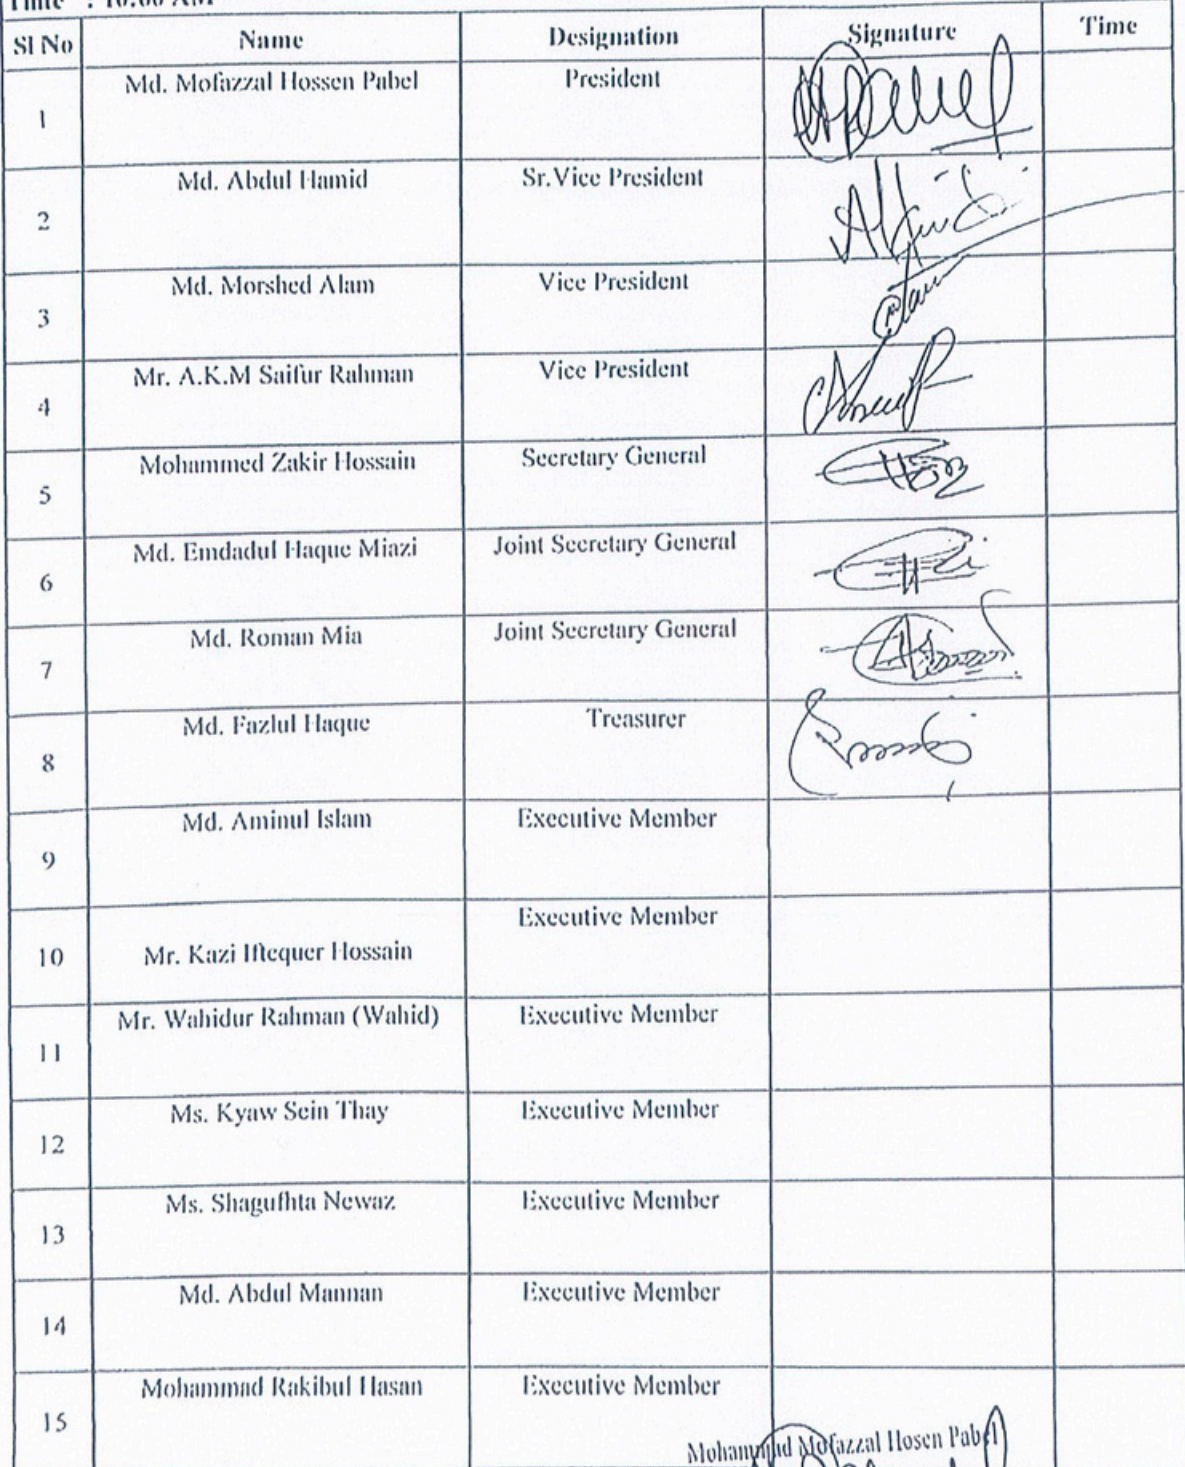 Time : 10.00 AM
Sl No Name Designation Signature Time
1 Md. Mofazzal Hossen Pabel President
2 Md. Abdul Hamid Sr.Vice President
3 Md. Morshed Alam Vice President
4 Mr. A.K.M Saifur Rahman Vice President
5 Mohammed Zakir Hossain Secretary General
6 Md. Emdadul Haque Miazi Joint Secretary General
7 Md. Roman Mia Joint Secretary General
8 Md. Fazlul Haque Treasurer
9 Md. Aminul Islam Executive Member
10 Mr. Kazi Iftequer Hossain Executive Member
11 Mr. Wahidur Rahman (Wahid) Executive Member
12 Ms. Kyaw Sein Thay Executive Member
13 Ms. Shagufhta Newaz Executive Member
14 Md. Abdul Mannan Executive Member
15 Mohammad Rakibul Hasan Executive Member
Mohammad Mofazzal Hosen Pabel